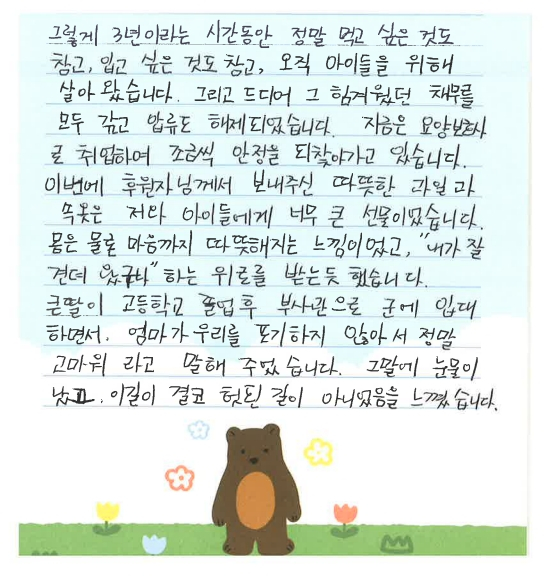 그렇게 3년이라는 시간동안 정말 먹고 싶은 것도
참고, 입고 싶은 것도 참고, 오직 아이들을 위해
살아 왔습니다. 그리고 드디어 그 힘겨웠던 채무를
모두 갚고 압류도 해제되었습니다. 지금은 요양보호사
로 취업하여 조금씩 안정을 되찾아가고 있습니다.
이번에 후원자님께서 보내주신 따뜻한 과일과
속옷은 저와 아이들에게 너무 큰 선물이었습니다.
몸은 물론 마음까지 따뜻해지는 느낌이었고, "내가 잘
견뎌 왔구나" 하는 위로를 받는듯 했습니다.
큰딸이 고등학교 졸업 후 부사관으로 군에 입대
하면서. 엄마가 우리를 포기하지 않아서 정말
고마워 라고 말해 주었습니다. 그말에 눈물이
났고. 이길이 결코 헛된 길이 아니었음을 느꼈습니다.